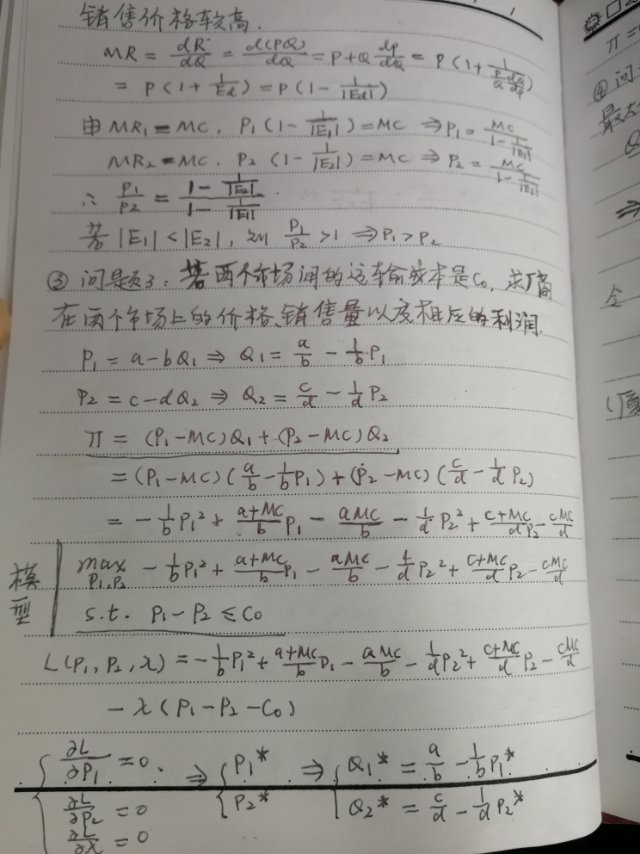 销售价格较高.
MR = dR/dQ = d(PQ)/dQ = P + Q dP/dQ = P(1 + 1/(P/Q dQ/dP))
= P(1 + 1/Ed) = P(1 - 1/|Ed|)
由 MR1 = MC. P1(1 - 1/|E1|) = MC ⇒ P1 = MC/(1 - 1/|E1|)
MR2 = MC. P2(1 - 1/|E2|) = MC ⇒ P2 = MC/(1 - 1/|E2|)
∴ P1/P2 = (1 - 1/|E2|)/(1 - 1/|E1|)
若 |E1| < |E2|, 则 P1/P2 > 1 ⇒ P1 > P2
③ 问题3: 若两个市场间的运输成本是C0, 求厂商
在两个市场上的价格、销售量以及相应的利润.
P1 = a - bQ1 ⇒ Q1 = a/b - 1/b P1
P2 = c - dQ2 ⇒ Q2 = c/d - 1/d P2
π = (P1 - MC)Q1 + (P2 - MC)Q2
= (P1 - MC)(a/b - 1/b P1) + (P2 - MC)(c/d - 1/d P2)
= - 1/b P1² + (a+MC)/b P1 - aMC/b - 1/d P2² + (c+MC)/d P2 - cMC/d
模型
max P1,P2 - 1/b P1² + (a+MC)/b P1 - aMC/b - 1/d P2² + (c+MC)/d P2 - cMC/d
s.t. P1 - P2 ≤ C0
L(P1, P2, λ) = - 1/b P1² + (a+MC)/b P1 - aMC/b - 1/d P2² + (c+MC)/d P2 - cMC/d
- λ(P1 - P2 - C0)
{ ∂L/∂P1 = 0. ⇒ { P1* ⇒ { Q1* = a/b - 1/b P1*
∂L/∂P2 = 0 P2* Q2* = c/d - 1/d P2*
∂L/∂λ = 0
π =
④ 问
最大
⇒
令